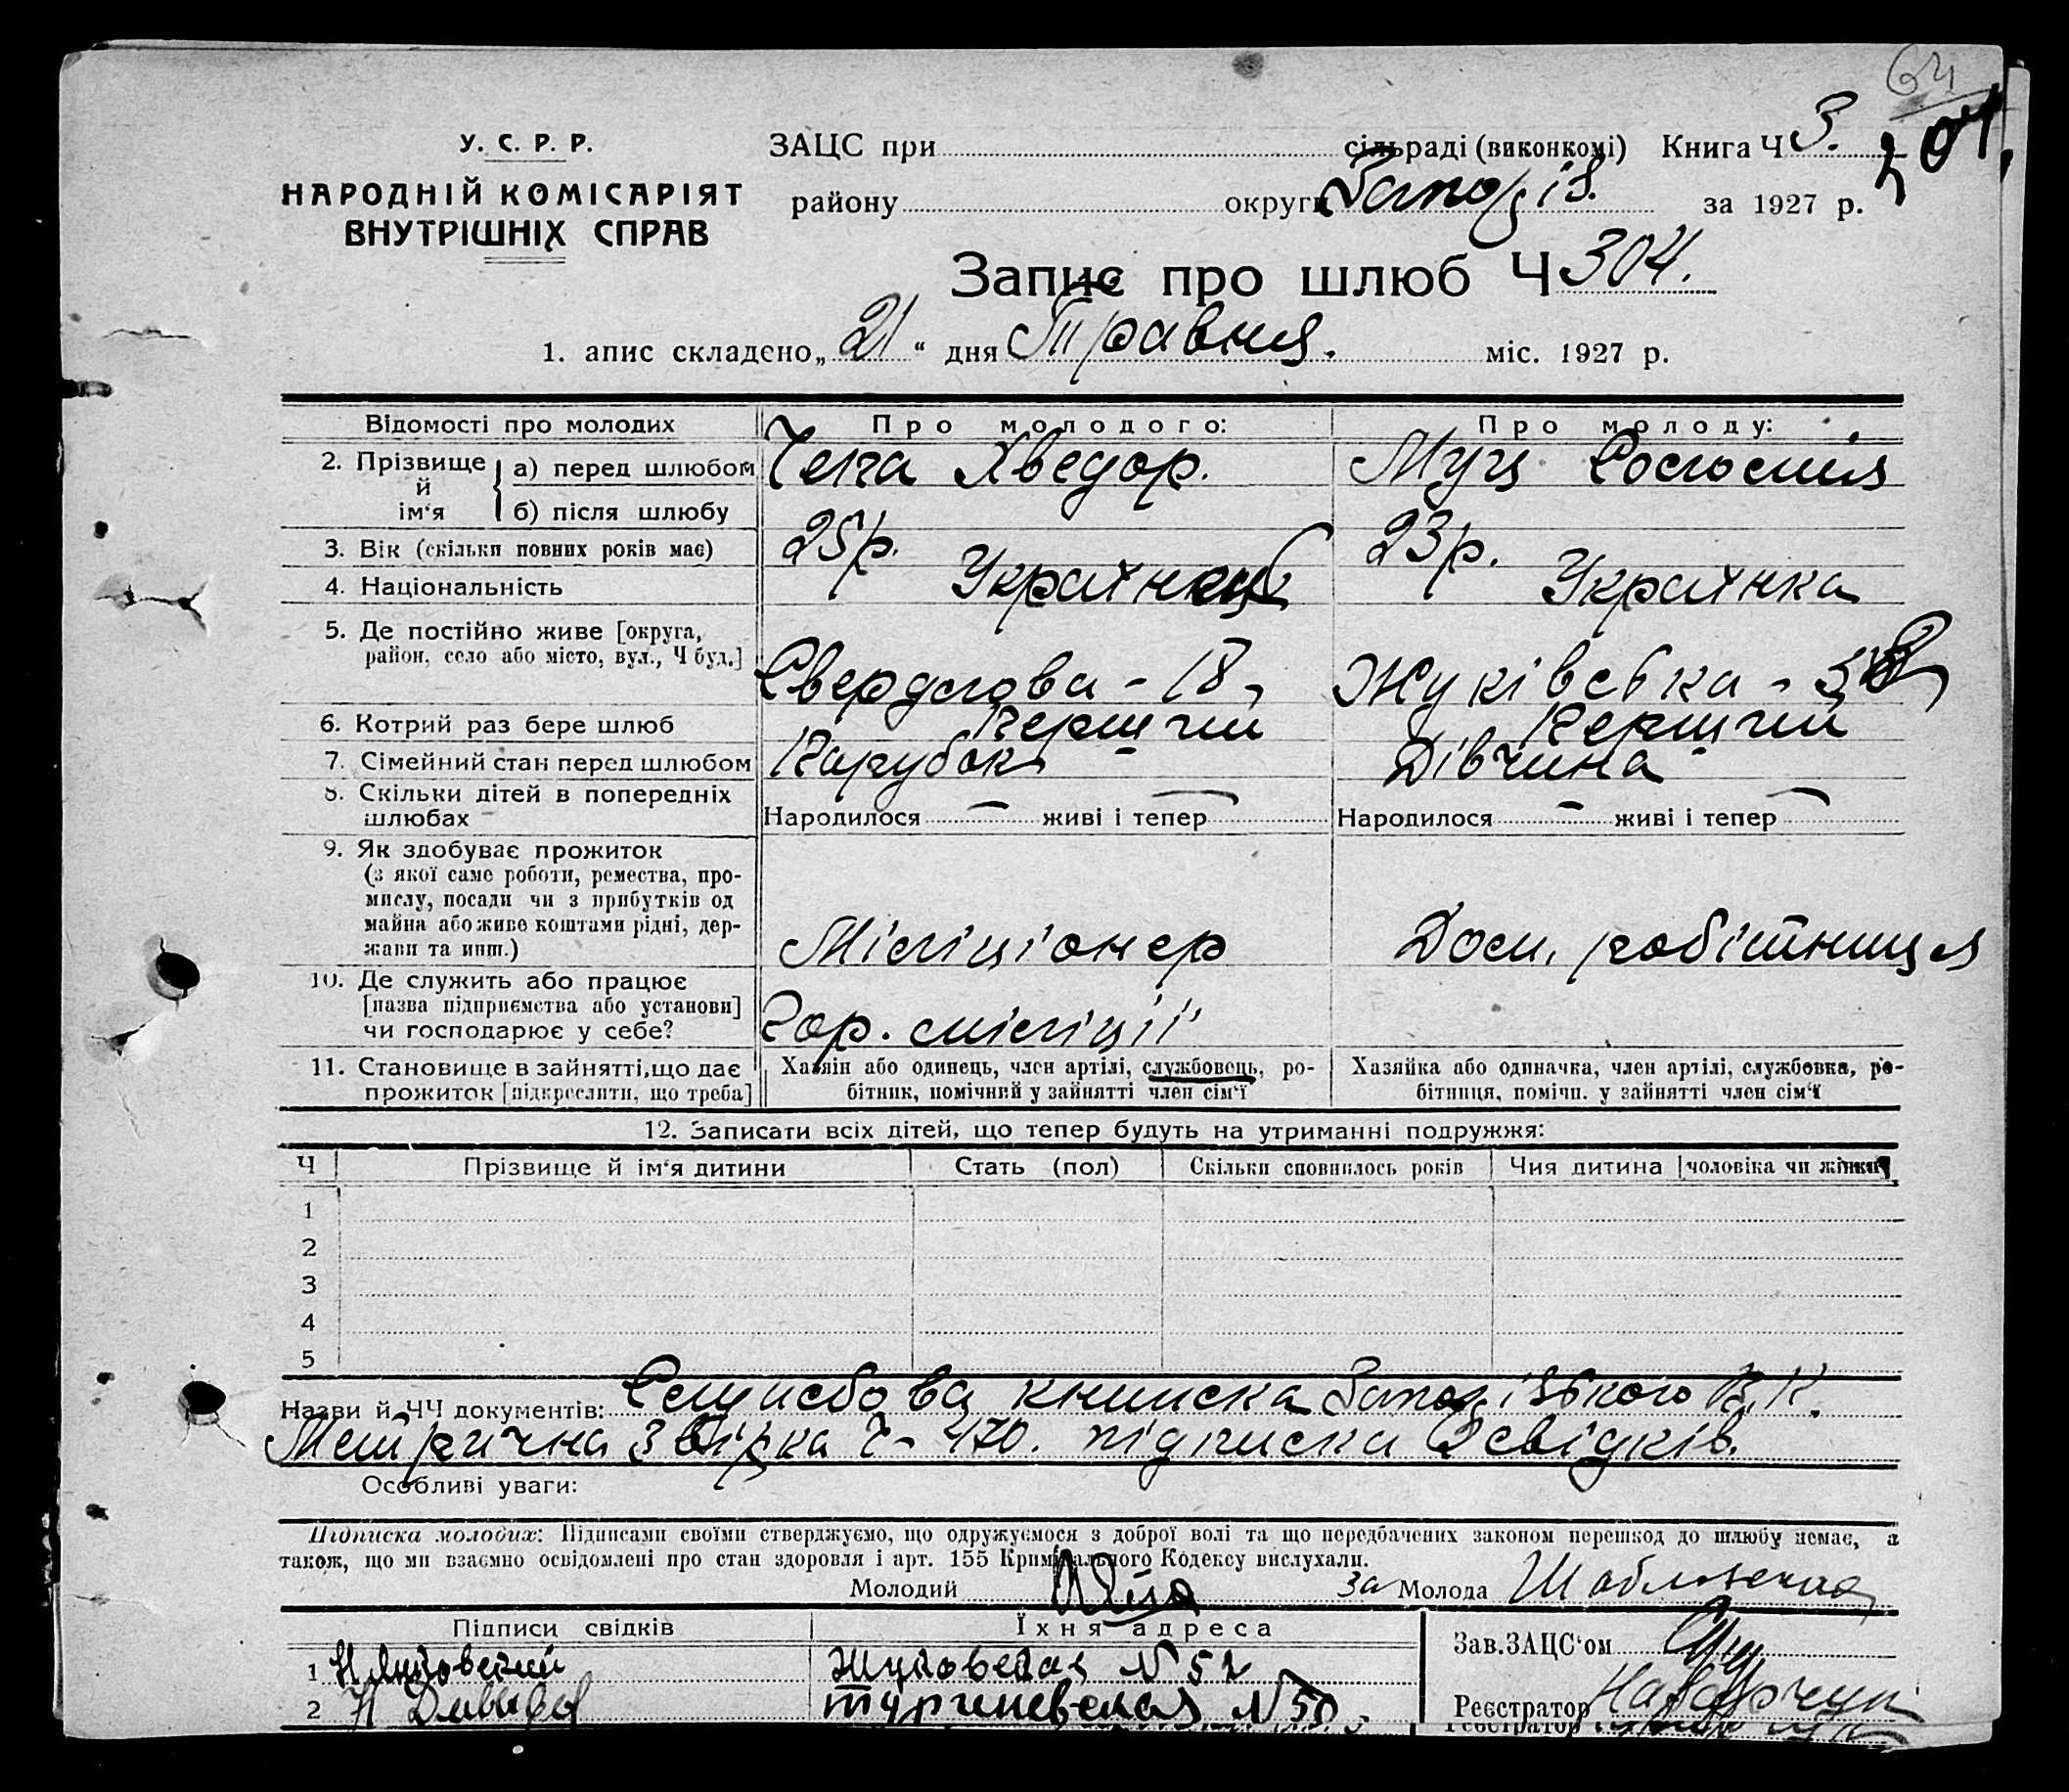 64
У. С. Р. Р.
НАРОДНІЙ КОМІСАРІЯТ
ВНУТРІШНІХ СПРАВ
ЗАЦС при сільраді (виконкомі) Книга Ч 3.
району округи Запоріз. за 1927 р.
Запис про шлюб Ч 304.
1. апис складено „ 21 “ дня Травня. міс. 1927 р.
Відомості про молодих
Про молодого:
Про молоду:
2. Прізвище й ім‘я
а) перед шлюбом
б) після шлюбу
Хведор.
3. Вік (скільки повних років має)
25 р.
23 р.
4. Національність
Українець
Українка
5. Де постійно живе [округа, район, село або місто, вул., Ч буд.]
Свердлова - 18,
Жуківська -
6. Котрий раз бере шлюб
Перший
Перший
7. Сімейний стан перед шлюбом
Парубок
Дівчина
8. Скільки дітей в попередніх шлюбах
Народилося — живі і тепер —
Народилося — живі і тепер —
9. Як здобуває прожиток
(з якої саме роботи, ремества, про-
мислу, посади чи з прибутків од
майна або живе коштами рідні, дер-
жави та инш.)
Міліціонер
Дом. робітниця
10. Де служить або працює
[назва підприємства або установи]
чи господарює у себе?
Гор. міліції
11. Становище в зайнятті, що дає
прожиток [підкреслити, що треба]
Хазяїн або одинець, член артілі, службовець, ро-
бітник, помічний у зайнятті член сім‘ї
Хазяйка або одиначка, член артілі, службовка, ро-
бітниця, помічн. у зайнятті член сім‘ї
12. Записати всіх дітей, що тепер будуть на утриманні подружжя:
Ч Прізвище й ім‘я дитини Стать (пол) Скільки сповнилось років Чия дитина [чоловіка чи жінки]
1
2
3
4
5
Назви й ЧЧ документів: Службова книжка Запорізького
Метрична звірка Ч- 470. підписка 2 свідків.
Особливі уваги:
Підписка молодих: Підписами своїми стверджуємо, що одружуємося з доброї волі та що передбачених законом перешкод до шлюбу немає, а
також, що ми взаємно освідомлені про стан здоровля і арт. 155 Кримінального Кодексу вислухали.
Молодий За Молода
Підписи свідків Їхня адреса
1 Жуковская N 52
2 Тургеневская N 50.
Зав. ЗАЦС‘ом
Реєстратор
Реєстратор